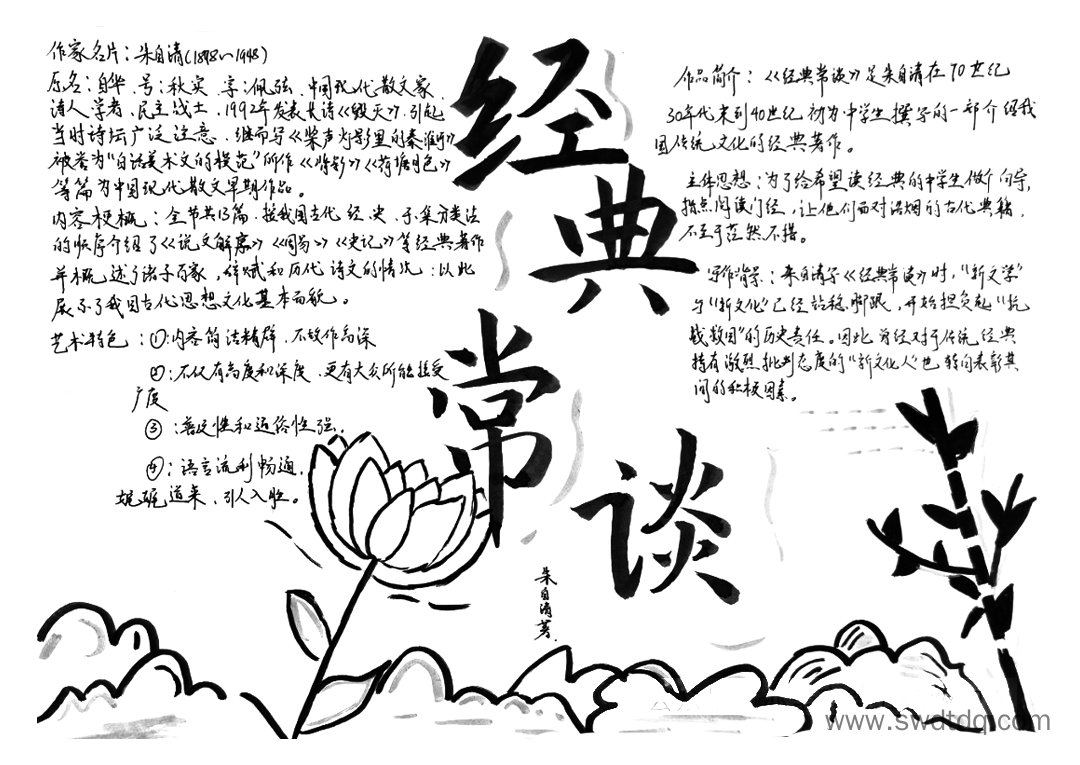 作家名片：朱自清(1898~1948)
原名：自华、号：秋实、字：佩弦、中国现代散文家、
诗人、学者、民主战士、1992年发表长诗《毁灭》、引起
当时诗坛广泛注意、继而写《桨声灯影里的秦淮河》
被誉为“白话美术文的模范”所作《背影》《荷塘月色》
等篇为中国现代散文早期作品。
内容梗概：全书共13篇、按我国古代 经、史、子、集分类法
的顺序介绍了《说文解字》《周易》《史记》等经典著作
并概述了诸子百家，辞赋和历代诗文的情况：以此
展示了我国古代思想文化基本面貌。
艺术特色：①：内容简洁精辟、不故作高深
②：不仅有高度和深度、更有大众所能接受
广度
③：普及性和通俗性强、
④：语言流利畅通、
娓娓道来、引人入胜。
经典
常谈
朱自清著
作品简介：《经典常谈》是朱自清在20世纪
30年代末到40世纪初为中学生撰写的一部介绍我
国传统文化的经典著作。
主体思想：为了给希望读经典的中学生做个向导，
指点阅读门径，让他们面对浩烟的古代典籍，
不至于茫然不措。
写作背景：朱自清写《经典常谈》时，“新文学”
与“新文化”已经站稳脚跟，开始担负起“抗
战救国”的历史责任。因此 曾经对于传统经典
持有激烈批判态度的“新文化人”也转向表彰其
间的积极因素。
www.swdtdq.com